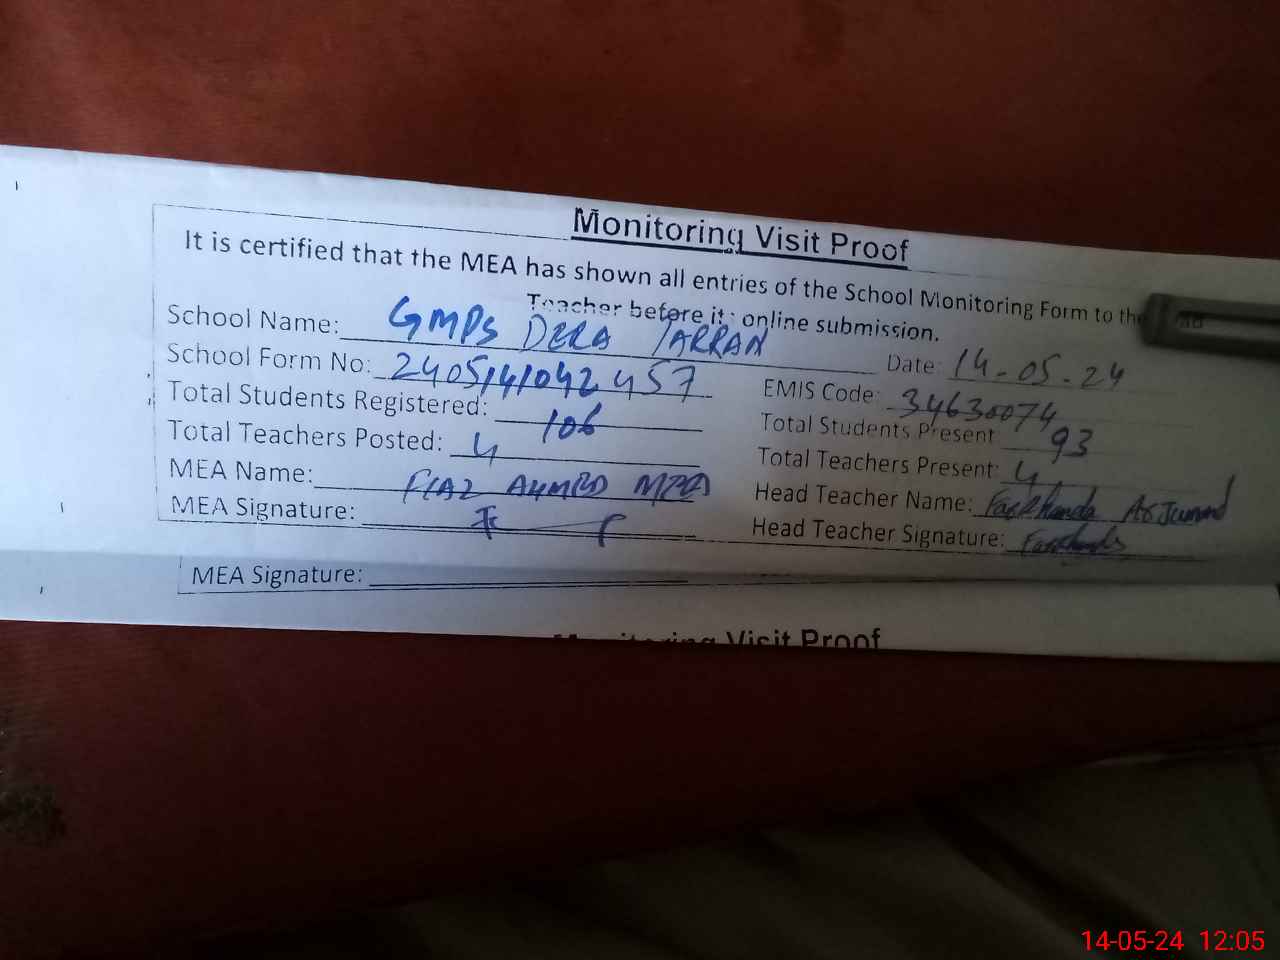 Monitoring Visit Proof
It is certified that the MEA has shown all entries of the School Monitoring Form to the
Teacher before its online submission.
School Name: GMPS DERA TARRAN Date: 14-05-24
School Form No: 240514104245​7 EMIS Code: 34630074
Total Students Registered: 106 Total Students Present: 93
Total Teachers Posted: 4 Total Teachers Present: 4
MEA Name: FIAZ AHMED MEA Head Teacher Name: Farkhanda Arjumand
MEA Signature: Head Teacher Signature: Farkhanda
MEA Signature:
Monitoring Visit Proof
14-05-24 12:05